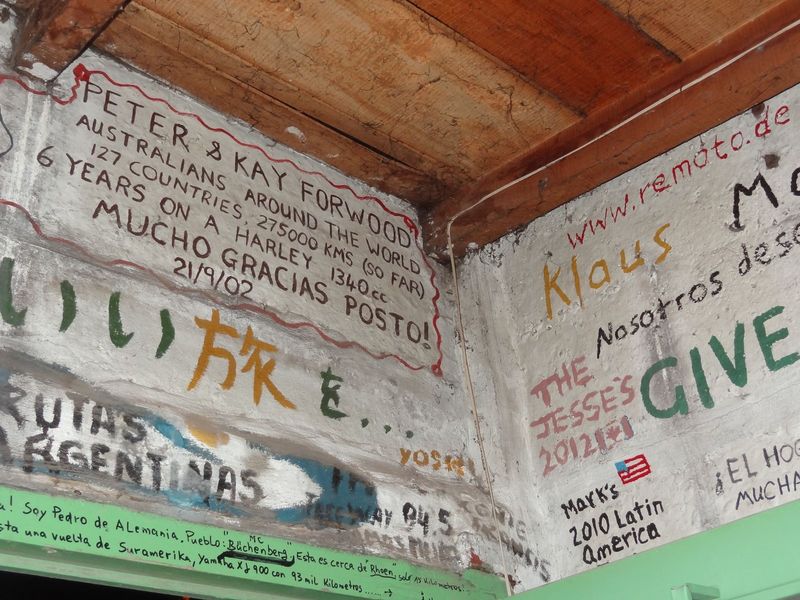 PETER & KAY FORWOOD
AUSTRALIANS AROUND THE WORLD
127 COUNTRIES, 275000 KMS (SO FAR)
6 YEARS ON A HARLEY 1340cc
MUCHO GRACIAS POSTO!
21/9/02
いい旅を...
RUTAS
ARGENTINAS
94.5
! Soy Pedro de Alemania, Pueblo: "Büchenberg", Esta es cerca de "Rhoen",
MC
una vuelta de Suramerika, Yamaha XJ 900 con 93 mil Kilometros
www.remoto.de
Klaus
Nosotros
THE
JESSE'S
2012
GIVE
Mark's
2010 Latin
America
¡EL